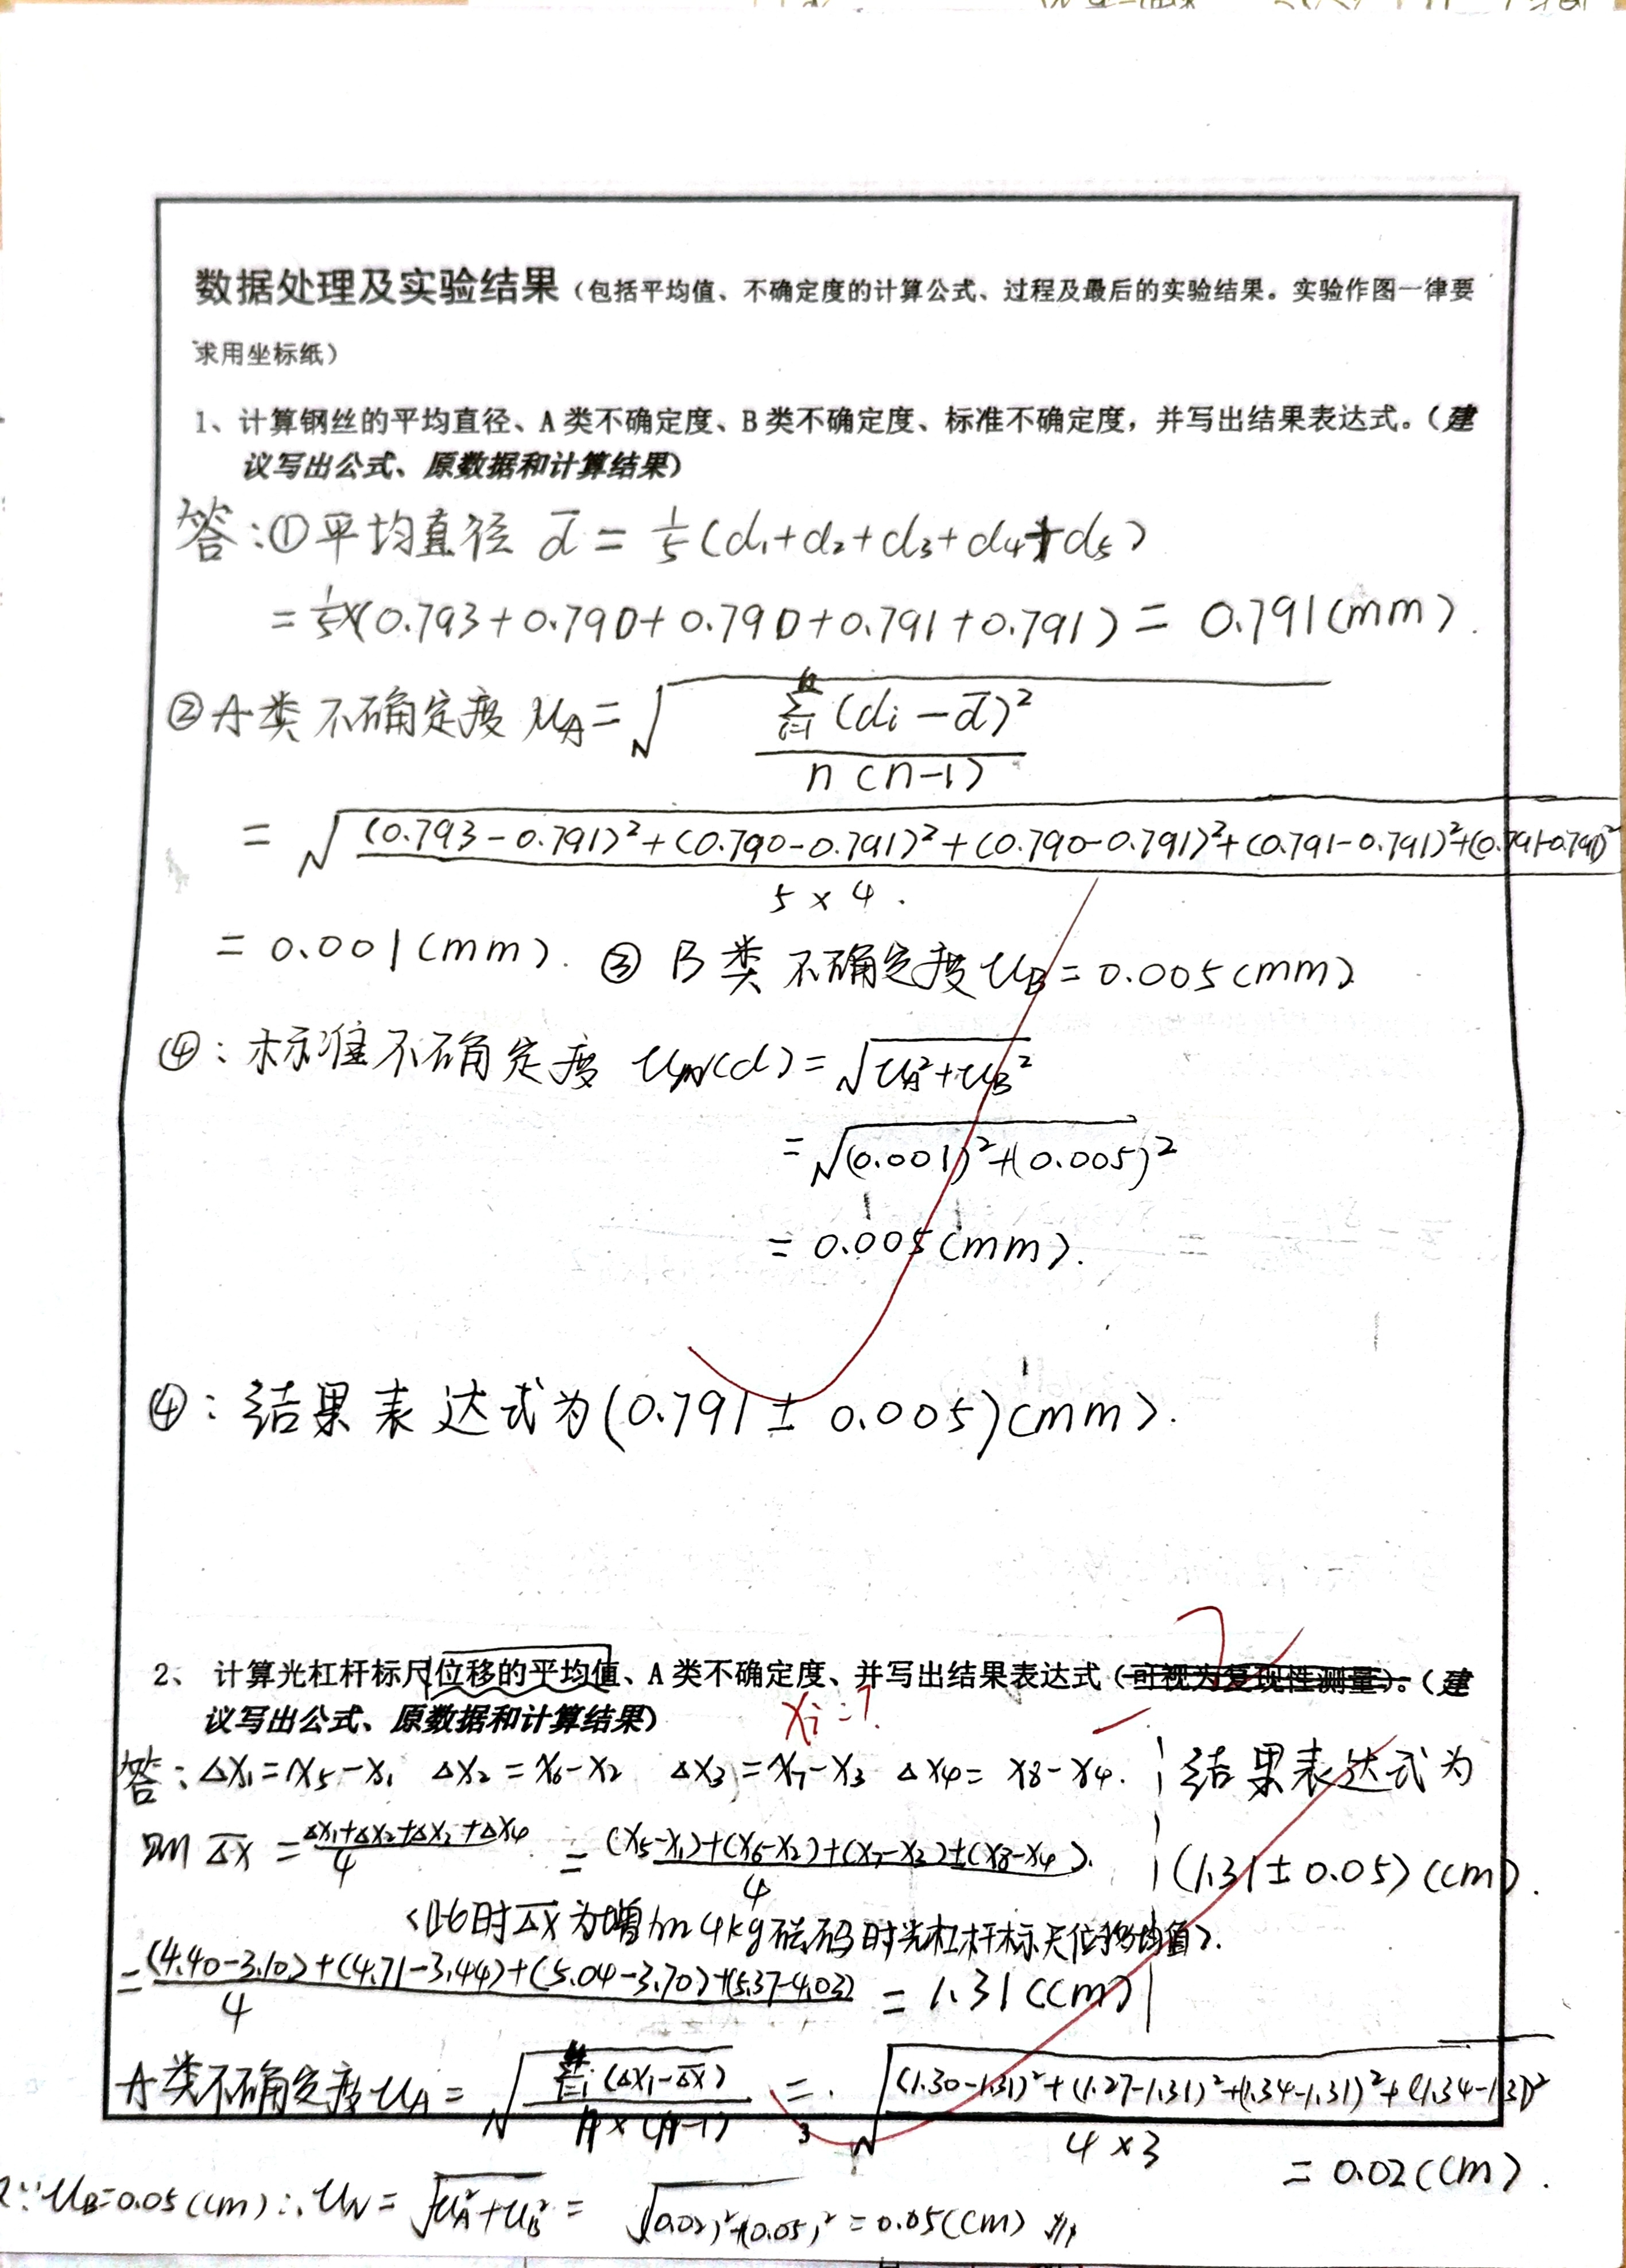 数据处理及实验结果（包括平均值、不确定度的计算公式、过程及最后的实验结果。实验作图一律要
求用坐标纸）
1、计算钢丝的平均直径、A 类不确定度、B 类不确定度、标准不确定度，并写出结果表达式。（建
议写出公式、原数据和计算结果）
答：①平均直径 d̄ = 1/5 (d₁+d₂+d₃+d₄+d₅)
= 1/5×(0.793+0.790+0.790+0.791+0.791) = 0.791(mm).
②A类不确定度 μA = √(Σi=1 (di-d̄)² / n(n-1))
= √((0.793-0.791)²+(0.790-0.791)²+(0.790-0.791)²+(0.791-0.791)²+(0.791-0.791)² / 5×4).
= 0.001(mm). ③ B类不确定度 uB = 0.005(mm)
④：标准不确定度 u(d) = √(uA²+uB²)
= √((0.001)²+(0.005)²)
= 0.005(mm).
④：结果表达式为(0.791 ± 0.005)(mm).
2、 计算光杠杆标尺位移的平均值、A 类不确定度、并写出结果表达式（可视为复现性测量）。（建
议写出公式、原数据和计算结果） xi=?
答：Δx₁=x₅-x₁ Δx₂=x₆-x₂ Δx₃=x₇-x₃ Δx₄=x₈-x₄. 结果表达式为
则 Δx̄ = (Δx₁+Δx₂+Δx₃+Δx₄)/4 = ((x₅-x₁)+(x₆-x₂)+(x₇-x₃)+(x₈-x₄))/4. (1.31±0.05)(cm).
<此时Δx̄为增加4kg砝码时光杠杆标尺位移均值>.
= ((4.40-3.10)+(4.71-3.44)+(5.04-3.70)+(5.37-4.03))/4 = 1.31(cm)
A类不确定度uA = √(Σi=1 (Δx₁-Δx̄) / n×(n-1)) = √((1.30-1.31)²+(1.27-1.31)²+(1.34-1.31)²+(1.34-1.31)² / 4×3)
= 0.02(cm).
∵uB=0.05(cm)∴uN = √(uA²+uB²) = √((0.02)²+(0.05)²) = 0.05(cm)